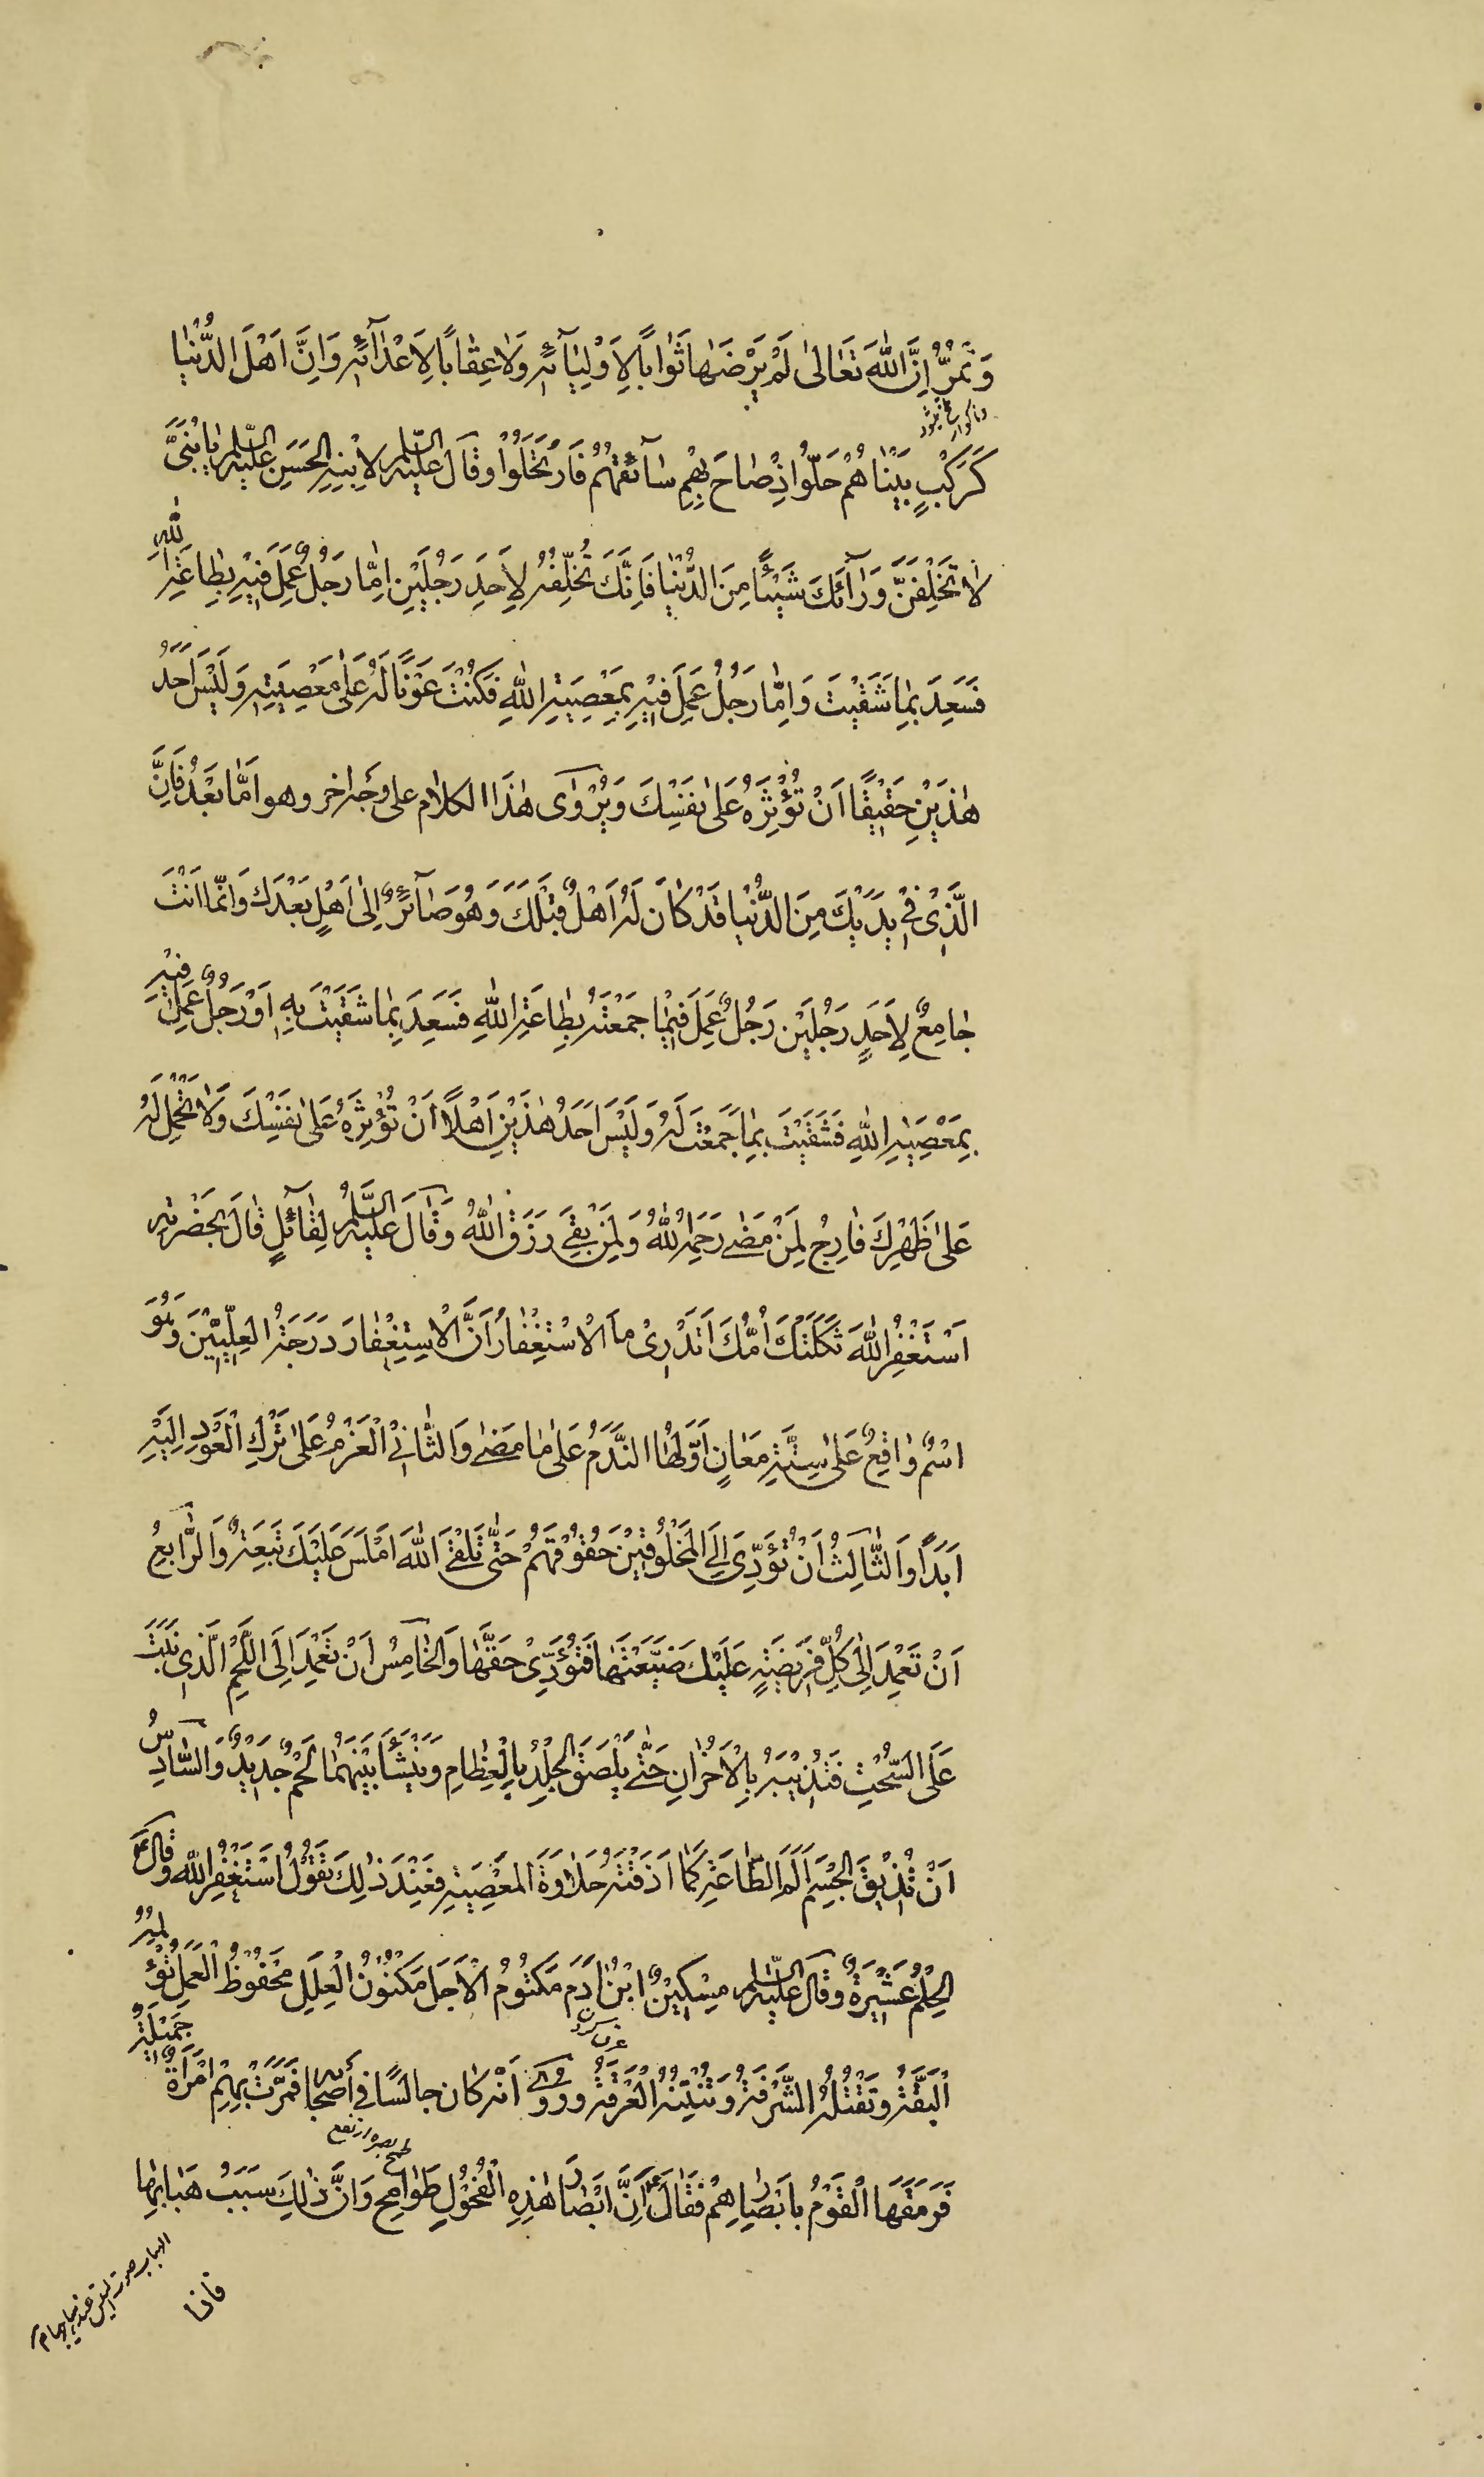 وَتَمُرُّ اِنَّ اللهَ تَعَالىٰ لَمْ يَرْضَهٰا ثَوٰاباً لِاَوْلِيٰآئِهِ وَلٰا عِقٰاباً لِاَعْدٰآئِهِ وَاِنَّ اَهْلَ الدُّنْيٰا
كَرَكْبٍ بَيْنٰاهُمْ حَلّوُا اِذْ صٰاحَ بِهِمْ سٰآئِقُهُمْ فَارْتَحَلُوْا وقَالَ عَليْهِ السَّلٰم لِابْنِهِ الحَسَنِ عَليْهِ السَّلٰم يٰا بُنَىَّ
لٰا تَخَلِّفَنَّ وَرٰآئَكَ شَيْئًا مِنَ الدُّنْيٰا فَاِنَّكَ تُخَلِّفُهُ لِاَحَدِ رَجُلَيْنِ اِمّٰا رَجُلٌ عَمِلَ فيْهِ بِطٰاعَةِ اللهِ
فَسَعِدَ بِمٰا شَقَيْتَ وَاِمّٰا رَجُلٌ عَمِلَ فيْهِ بِمَعْصِيَةِ اللهِ فَكُنْتَ عَوْنًا لَهُ عَلىٰ مَعْصِيَتِهِ وَلَيْسَ اَحَدُ
هٰذَيْنِ حَقيْقًا اَنْ تُؤْثِرَهُ عَلىٰ نَفْسِكَ وَيُرْوٰى هٰذَا الكلٰام على وجَهٍ اخر وهو اَمّٰا بَعْدُ فَاِنَّ
الَّذِىْ فيْ يَدَيْكَ مِنَ الدُّنْيٰا قَدْ كٰانَ لَهُ اَهْلٌ قَبْلَكَ وَهُوَ صٰآئِرٌ اِلىٰ اَهْلٍ بَعْدَكَ وَاِنَّمٰا اَنْتَ
جٰامِعٌ لِاَحَدِ رَجُلَيْنِ رَجُلٌ عَمِلَ فيْمٰا جَمَعْتَهُ بِطٰاعَةِ اللهِ فَسَعِدَ بِمٰا شَقَيْتَ بِهِ اَوْ رَجُلٌ عَمِلَ فيْهِ
بِمَعْصِيَةِ اللهِ فَشَقَيْتَ بِمٰا جَمَعْتَ لَهُ وَلَيْسَ اَحَدُ هٰذَيْنِ اَهْلًا اَنْ تُؤْثِرَهُ عَلىٰ نَفْسِكَ وَلٰا تَحْمِلَ لَهُ
عَلىٰ ظَهْرِكَ فَارْجُ لِمَنْ مَضىٰ رَحْمَةَ اللهِ وَلِمَنْ بَقِىَ رِزْقَ اللهِ وَقٰالَ عَليْهِ السَّلٰمُ لِقٰآئِلٍ قٰالَ بِحَضْرَتِهِ
اَسْتَغْفِرُ اللهَ ثَكَلَتْكَ اُمُّكَ اَتَدْرِىْ ماَ الْاسْتِغْفٰارُ اَنَّ الْاِسْتِغْفٰارَ دَرَجَةُ العِلِّيّيْنَ وَهُوَ
اسْمٌ وٰاقِعٌ عَلىٰ سِتَّةِ مَعٰانٍ اَوَّلُهٰا النَّدَمُ عَلىٰ مٰا مَضىٰ وَالثّٰانِيْ الْعَزْمُ عَلىٰ تَرْكِ الْعَوْدِ اِلَيْهِ
اَبَدًا وَالثّٰالِثُ اَنْ تُؤَدِّىَ اِلَى المَخْلُوقيْنَ حُقُوْقَهُمْ حَتّٰى تَلْقَى اللهَ اَمْلَسَ لَيْسَ عَلَيْكَ تَبِعَةٌ وَالرّٰابِعُ
اَنْ تَعْمِدَ اِلىٰ كُلِّ فَريْضَةٍ عَلَيْكَ ضَيَّعْتَهٰا فَتُؤَدِّىْ حَقَّهٰا وَالخٰامِسُ اَنْ تَعْمِدَ اِلَى اللَّحْمِ الَّذى نَبَتَ
عَلَى السُّحْتِ فَتُذيْبَهُ بِالْاَحْزٰانِ حَتّٰى يَلْصَقَ الجِلْدُ بِالْعِظٰامِ وَيَنْشَأَ بَيْنَهُمٰا لَحْمٌ جَديْدٌ وَالسّٰادِسُ
اَنْ تُذيْقَ الجِسْمَ اَلَمَ الطّٰاعَةِ كَمٰا اَذَقْتَهُ حَلٰاوَةَ المَعْصِيَةِ فَعِنْدَ ذٰلِكَ تَقُوْلُ اَسْتَغْفِرُ اللهَ وَقٰالَ ع
الحِلْمُ عَشيْرَةٌ وقَالَ عَليْهِ السَّلٰم مِسْكيْنٌ ابْنُ اٰدَمَ مَكْتُومُ الْاَجَلِ مَكْنُوْنُ الْعِلَلِ مَحْفُوْظُ الْعَمَلِ تُؤْلِمُهُ
الْبَقَّةُ وَتَقْتُلُهُ الشَّرْقَةُ وَتُنْتِنُهُ الْعَرْقَةُ وَرُوِىَ اَنّه كٰان جالسًا في أصحابه فَمَرَّتْ بِهِمُ امْرَأَةٌ جَميْلَةٌ
فَرَمَقَهَا الْقَوْمُ بِاَبْصٰارِهِمْ فَقٰالَ ع اِنَّ ابْصٰارَ هٰذِهِ الْفُحُوْلِ طَوٰامِحُ وَاِنَّ ذٰلِكَ سَبَبُ هَبٰابِهٰا
فاذا